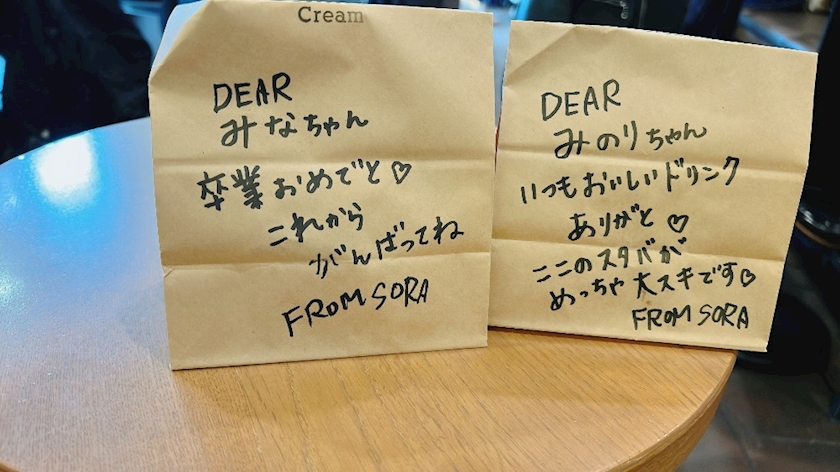 Cream
DEAR
みなちゃん
卒業おめでと♡
これから
がんばってね
FROM SORA
DEAR
みのりちゃん
いつもおいしいドリンク
ありがと♡
ここのスタバが
めっちゃ大スキです♡
FROM SORA